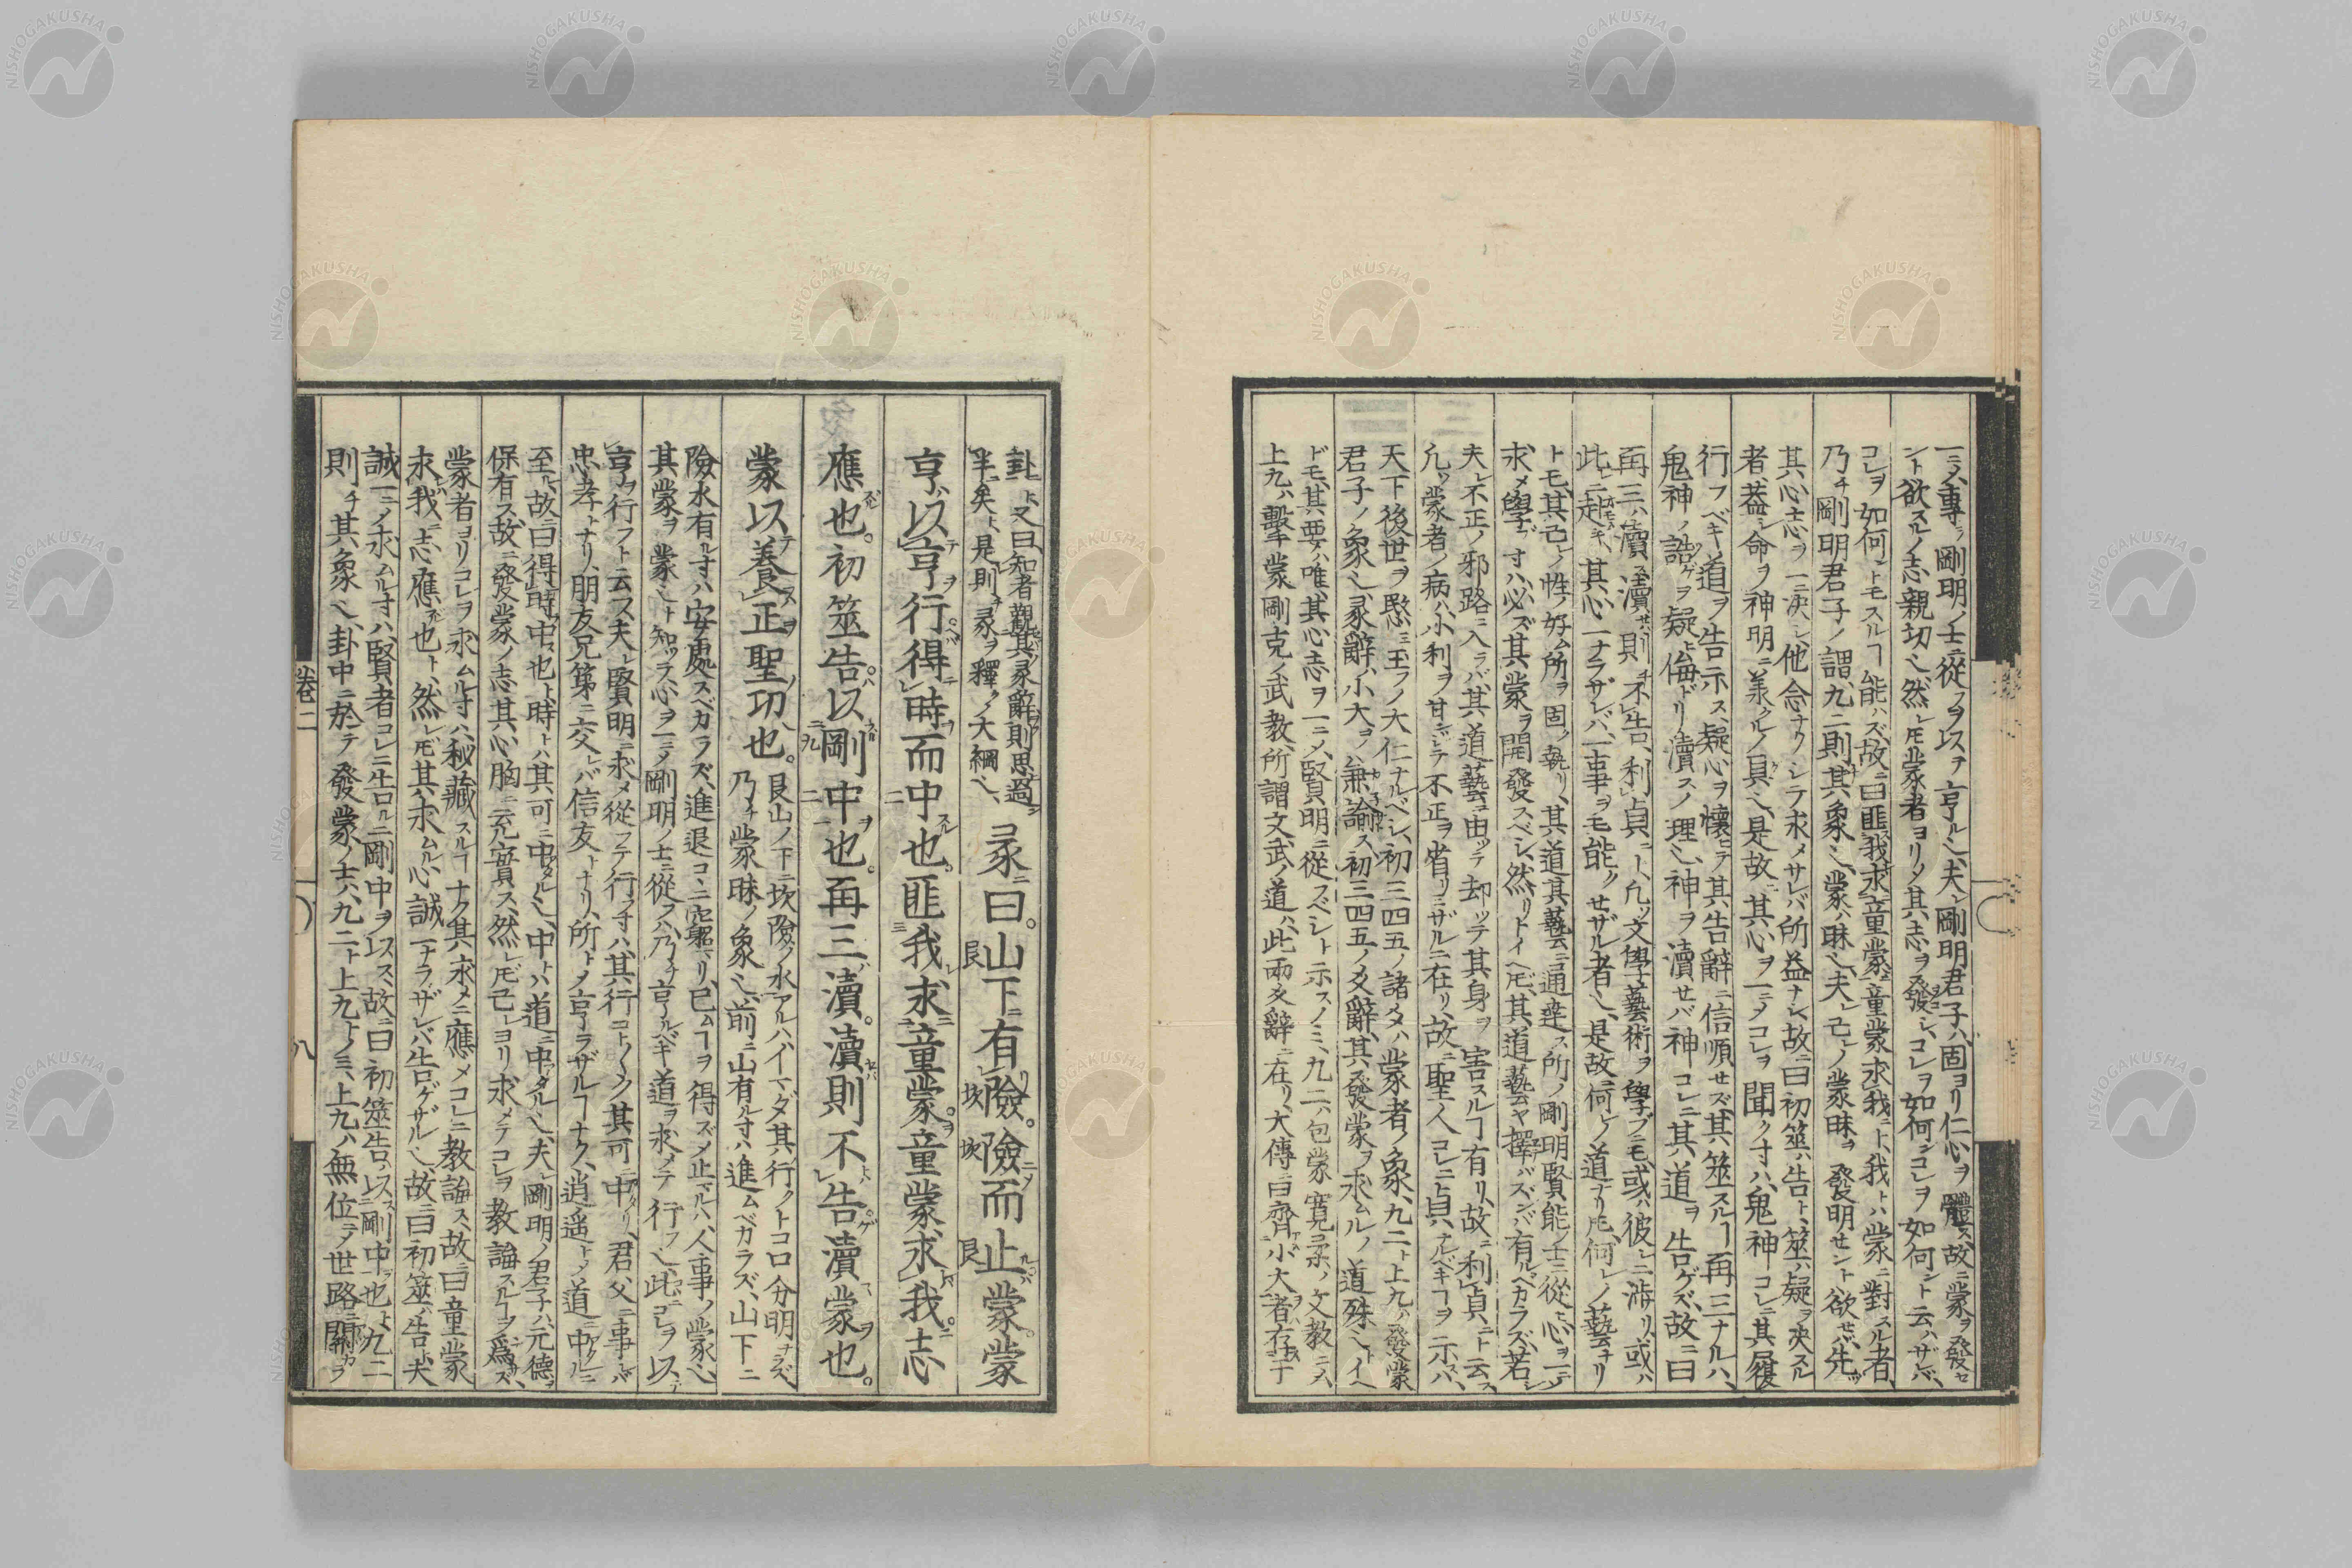 一ニメ專ラ剛明ノ士ニ從フヲ以ヲ亨ル也、夫レ剛明君子ハ、固ヨリ仁心ヲ體ス、故ニ蒙ヲ發セ
ント欲スルノ志親切也、然レ𪜈蒙者ヨリメ其志ヲ發シ、コレヲ如何シコレヲ如何ント云ハザレバ、
コレヲ如何ントモスルヿ能ハズ、故ニ曰匪我求童蒙、童蒙求我ト、我トハ蒙ニ對スル者、
乃チ剛明君子ノ謂、九二則其象也、蒙ハ昧也、夫レ己レノ蒙昧ヲ發明セント欲セバ、先ヅ
其心志ヲ一ニ決シ、他念ナクシテ求メサレバ所益ナシ、故ニ曰初筮ハ告ト、筮ハ疑ヲ決スル
者、蓋シ命ヲ神明ニ羕クルノ具也、是故ニ其心ヲ一ニメコレヲ聞ク寸ハ、鬼神コレニ其履
行フベキ道ヲ告示ス、疑心ヲ懷ヒテ其告辭ニ信順セズ、其筮スルヿ再三ナルハ、
鬼神ノ誥ゲヲ疑ヒ侮ドリ瀆スノ理也、神ヲ瀆セバ神コレニ其道ヲ告ゲズ、故ニ曰
再三ハ瀆ス、瀆セハ則チ不告、利貞ニト、凡ソ文學藝術ヲ學ブニモ、或ハ彼レニ渉リ、或ハ
此レニ趨キ、其心一ナラザレバ、一事ヲモ能クセザル者也、是故ニ何レノ道ナリ𪜈、何レノ藝ナリ
トモ、其己レノ性ノ好ム所ヲ固ク執リ、其道其藝ニ通達ス所ノ剛明賢能ノ士ニ從ヒ、心ヲ一ニメ
求メ學ブ寸ハ、必ズ其蒙ヲ開發スベシ、然リトイヘ𪜈、其道藝ヤ擇バズンバ有ルベカラズ、若シ
夫レ不正ノ邪路ニ入ラバ、其道藝ニ由ッテ却ッテ其身ヲ害スルヿ有リ、故ニ利貞ニト云フ、
凡ソ蒙者ノ病ハ、小利ヲ甘ンシテ不正ヲ省リミザルニ在リ、故ニ聖人コレニ貞ナルベキヿヲ示ス、
天下後世ヲ愍ミ玉フノ大仁ナルベシ、初三四五ノ諸爻ハ蒙者ノ象、九二ト上九ハ發蒙
君子ノ象也、彖辭ハ小大ヲ兼論ス、初三四五ノ爻辭、其發蒙ヲ求ムルノ道殊也トイヘ
ドモ、其要ハ唯其心志ヲ一ニメ、賢明ニ從スベシト示スノミ、九二ハ包蒙寬柔ノ文教ニメ、
上九ハ擊蒙剛克ノ武教、所謂文武ノ道ハ、此兩爻辭ニ在リ、大傳ニ曰齊小大者存于
卦ニト、又曰、知者觀其彖辭則思過
半矣ト、是則チ彖ヲ釋クノ大綱也、 彖曰。山下有險。險而止蒙。蒙
亨。以亨行得時而中也。匪我求童蒙。童蒙求我。志
應也。初筮告。以剛中也。再三瀆。瀆則不告。瀆蒙也。
蒙以養正聖功也。 艮山ノ下ニ坎險ノ水アルハ、イマダ其行クトコロ分明ナラズ、
乃チ蒙昧ノ象也、前ニ山有ル寸ハ進ムベカラズ、山下ニ
險水有ル寸ハ安處スベカラズ、進退コヽニ窮マリ、已ムヿヲ得ズメ止マルハ、人事ノ蒙也、
其蒙ヲ蒙也ト知ツラ、心ヲ一ニメ剛明ノ士ニ從フハ、乃チ亨ルベキ道ヲ求メテ行フ也、此ニコレヲ以テ
亨ヲ行フト云フ、夫レ賢明ニ求メ從フテ行フ寸ハ、其行コト〱ク其可ニ中タリ、君父ニ事レバ
忠孝トナリ、朋友兄第ニ交レバ信友トナリ、所トメ亨ラザルヿナク、逍遙トメ道ニ中ルニ
至ル、故ニ曰得時中也ト、時トハ其可ニ中タル也、中トハ道ニ中タル也、夫レ剛明ノ君子ハ元德ヲ
保有ス、故ニ發蒙ノ志其心胸ニ充實ス、然レ𪜈己レヨリ求メテコレヲ教諭スルヿヲ爲ズ、
蒙者ヨリコレヲ求ムル寸ハ、秘藏スルヿナク其求メニ應メコレニ教諭ス、故ニ曰童蒙
求我ニ志應也ト、然レ𪜈其ノ求ムル心誠一ナラザレバ告ゲザル也、故ニ曰初筮ハ告ト、夫
誠一ニメ求ムル寸ハ、賢者コレニ告ルニ剛中ヲ以ス、故ニ曰初筮告ハ、以剛中也ト、九二
則チ其象也、卦中ニ於テ發蒙ノ士、九二ト上九トノミ、上九ハ無位ニメ世路ニ關カラ
卷二
八